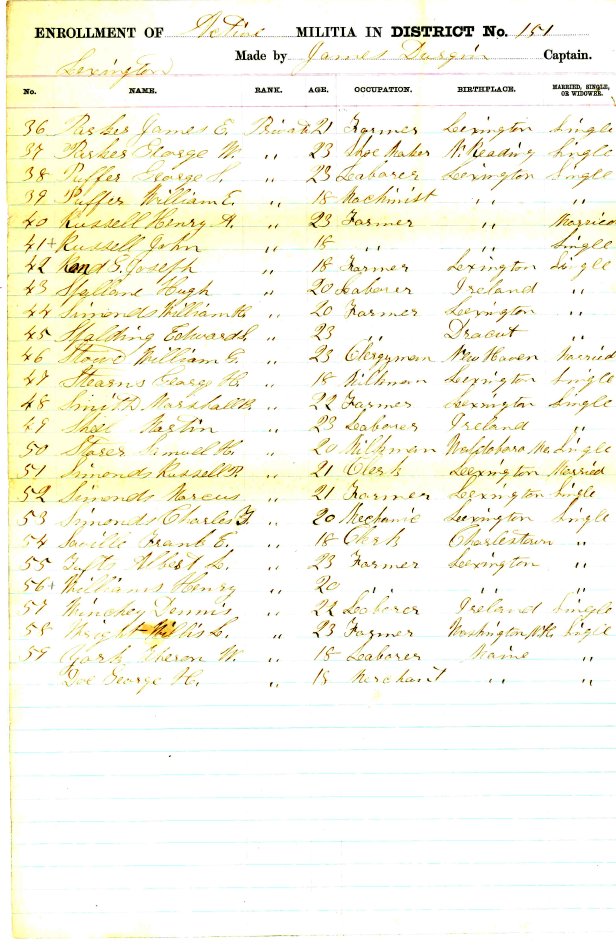 ENROLLMENT OF Active MILITIA IN DISTRICT No. 151
Lexington Made by James Durgin Captain.
No. NAME. RANK. AGE. OCCUPATION. BIRTHPLACE. MARRIED, SINGLE, OR WIDOWER.
36 Parker James E. Private 21 Farmer Lexington Single
37 Parker George W. " 23 Shoe Maker N. Reading Single
38 Puffer George S. " 23 Laborer Lexington Single
39 Puffer William E. " 18 Machinist " "
40 Russell Henry A. " 23 Farmer " Married
41+ Russell John " 18 " " Single
42 Rand E. Joseph " 18 Farmer Lexington Single
43 Hugh " 20 Laborer Ireland "
44 Simonds William H. " 20 Farmer Lexington "
45 Spalding Edward S. " 23 " Dracut "
46 Stowe William E. " 23 Clergyman New Haven Married
47 Stearns George H. " 18 Milkman Lexington Single
48 Smith Marshall " 22 Farmer Lexington Single
49 Martin " 23 Laborer Ireland "
50 Storer Simuel H. " 20 Milkman Waldoboro Me. Single
51 Simonds Russell " 21 Clerk Lexington Married
52 Simonds Marcus " 21 Farmer Lexington Single
53 Simonds Charles F. " 20 Mechanic Lexington Single
54 Saville Frank E. " 18 Clerk Charlestown "
55 Tufts Albert L. " 23 Farmer Lexington "
56+ Williams Henry " 20 " " "
57 Dennis " 22 Laborer Ireland Single
58 Wright Willis L. " 23 Farmer Washington N.H. Single
59 York W. " 18 Laborer Maine "
Doe George H. " 18 Merchant " "